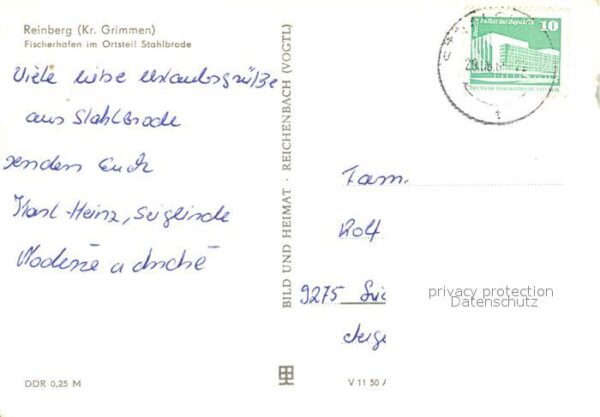 Reinberg (Kr. Grimmen)
Fischerhafen im Ortsteil Stahlbrode
Viele liebe Urlaubsgrüße
aus Stahlbrode
senden Euch
Karl-Heinz, Sieglinde
BILD UND HEIMAT · REICHENBACH (VOGTL)
10
Palast der Republik
DEUTSCHE DEMOKRATISCHE REPUBLIK
t
Fam.
Rolf
9275
privacy protection
Datenschutz
DDR 0,25 M
V 11 50 A